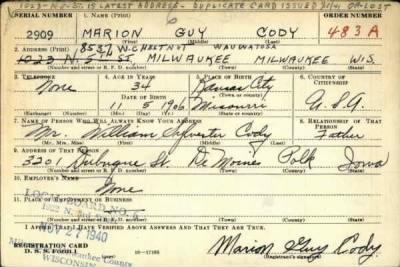 1023-N-5-ST. IS LATEST ADDRESS - DUPLICATE CARD ISSUED
SERIAL NUMBER 1. NAME (Print) ORDER NUMBER
2909 MARION GUY CODY 483A
(First) (Middle) (Last)
2. ADDRESS (Print) 8537 W. CHESTNUT WAUWATOSA
1023 N. 5TH ST. MILWAUKEE MILWAUKEE WIS.
(Number and street or R. F. D. number) (Town) (County) (State)
3. TELEPHONE 4. AGE IN YEARS 5. PLACE OF BIRTH 6. COUNTRY OF CITIZENSHIP
None 34 Kansas City
DATE OF BIRTH (Town or county)
11 5 1906 Missouri U.S.A.
(Exchange) (No.) (Mo.) (Day) (Yr.) (State or country)
7. NAME OF PERSON WHO WILL ALWAYS KNOW YOUR ADDRESS 8. RELATIONSHIP OF THAT PERSON
Mr. William Sylvester Cody Father
(Mr., Mrs., Miss) (First) (Middle) (Last)
9. ADDRESS OF THAT PERSON
3201 Dubuque St. De Moines Polk Iowa
(Number and street or R. F. D. number) (Town) (County) (State)
10. EMPLOYER'S NAME
None
11. PLACE OF EMPLOYMENT OR BUSINESS
LOCAL BOARD No. 6
(Number and street or R. F. D. number) (Town) (County) (State)
I AFFIRM THAT I HAVE VERIFIED ABOVE ANSWERS AND THAT THEY ARE TRUE.
NOV 27 1940
Milwaukee County
REGISTRATION CARD
D. S. S. FORM 1 16-17105 Marion Guy Cody
WISCONSIN (Registrant's signature)